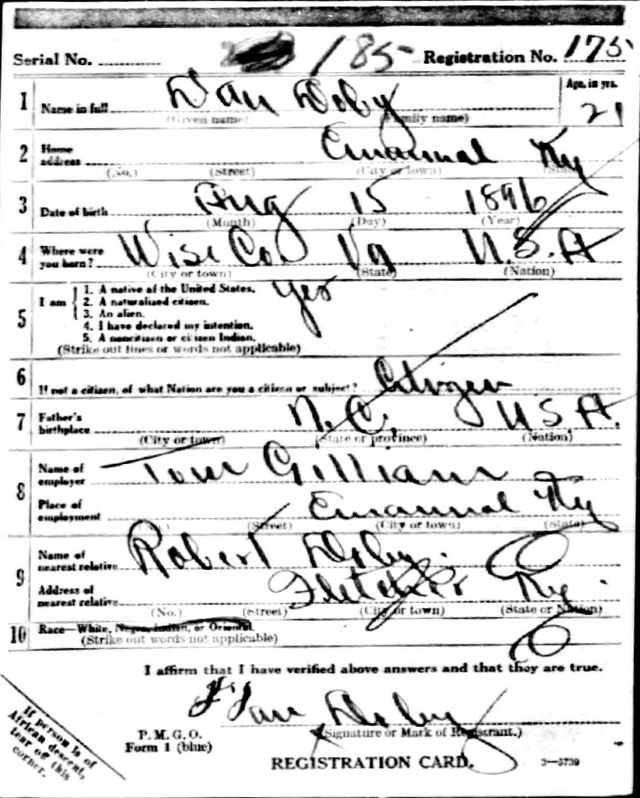 Serial No. 185 Registration No. 175
1 Name in full Dan Doby Age, in yrs.
(Given name) (Family name) 21
2 Home address Emanual Ky
(No.) (Street) (City or town) (State)
3 Date of birth Aug 15 1896
(Month) (Day) (Year)
4 Where were you born? Wise Co. Va U.S.A
(City or town) (State) (Nation)
5 I am
1. A native of the United States. yes
2. A naturalized citizen.
3. An alien.
4. I have declared my intention.
5. A noncitizen or citizen Indian.
(Strike out lines or words not applicable)
6 If not a citizen, of what Nation are you a citizen or subject? Citizen
7 Father's birthplace N.C. U.S.A.
(City or town) (State or province) (Nation)
8 Name of employer Tom Gilliam
Place of employment Emanual Ky
(Street) (City or town) (State)
9 Name of nearest relative Robert Doby.
Address of nearest relative Fletcher Ky.
(No.) (Street) (City or town) (State or Nation)
10 Race—White, Negro, Indian, or Oriental.
(Strike out words not applicable)
I affirm that I have verified above answers and that they are true.
Dan Doby
P. M. G. O. (Signature or Mark of Registrant.)
Form 1 (blue)
REGISTRATION CARD. 3—5739
If person is of
African descent,
tear off this
corner.